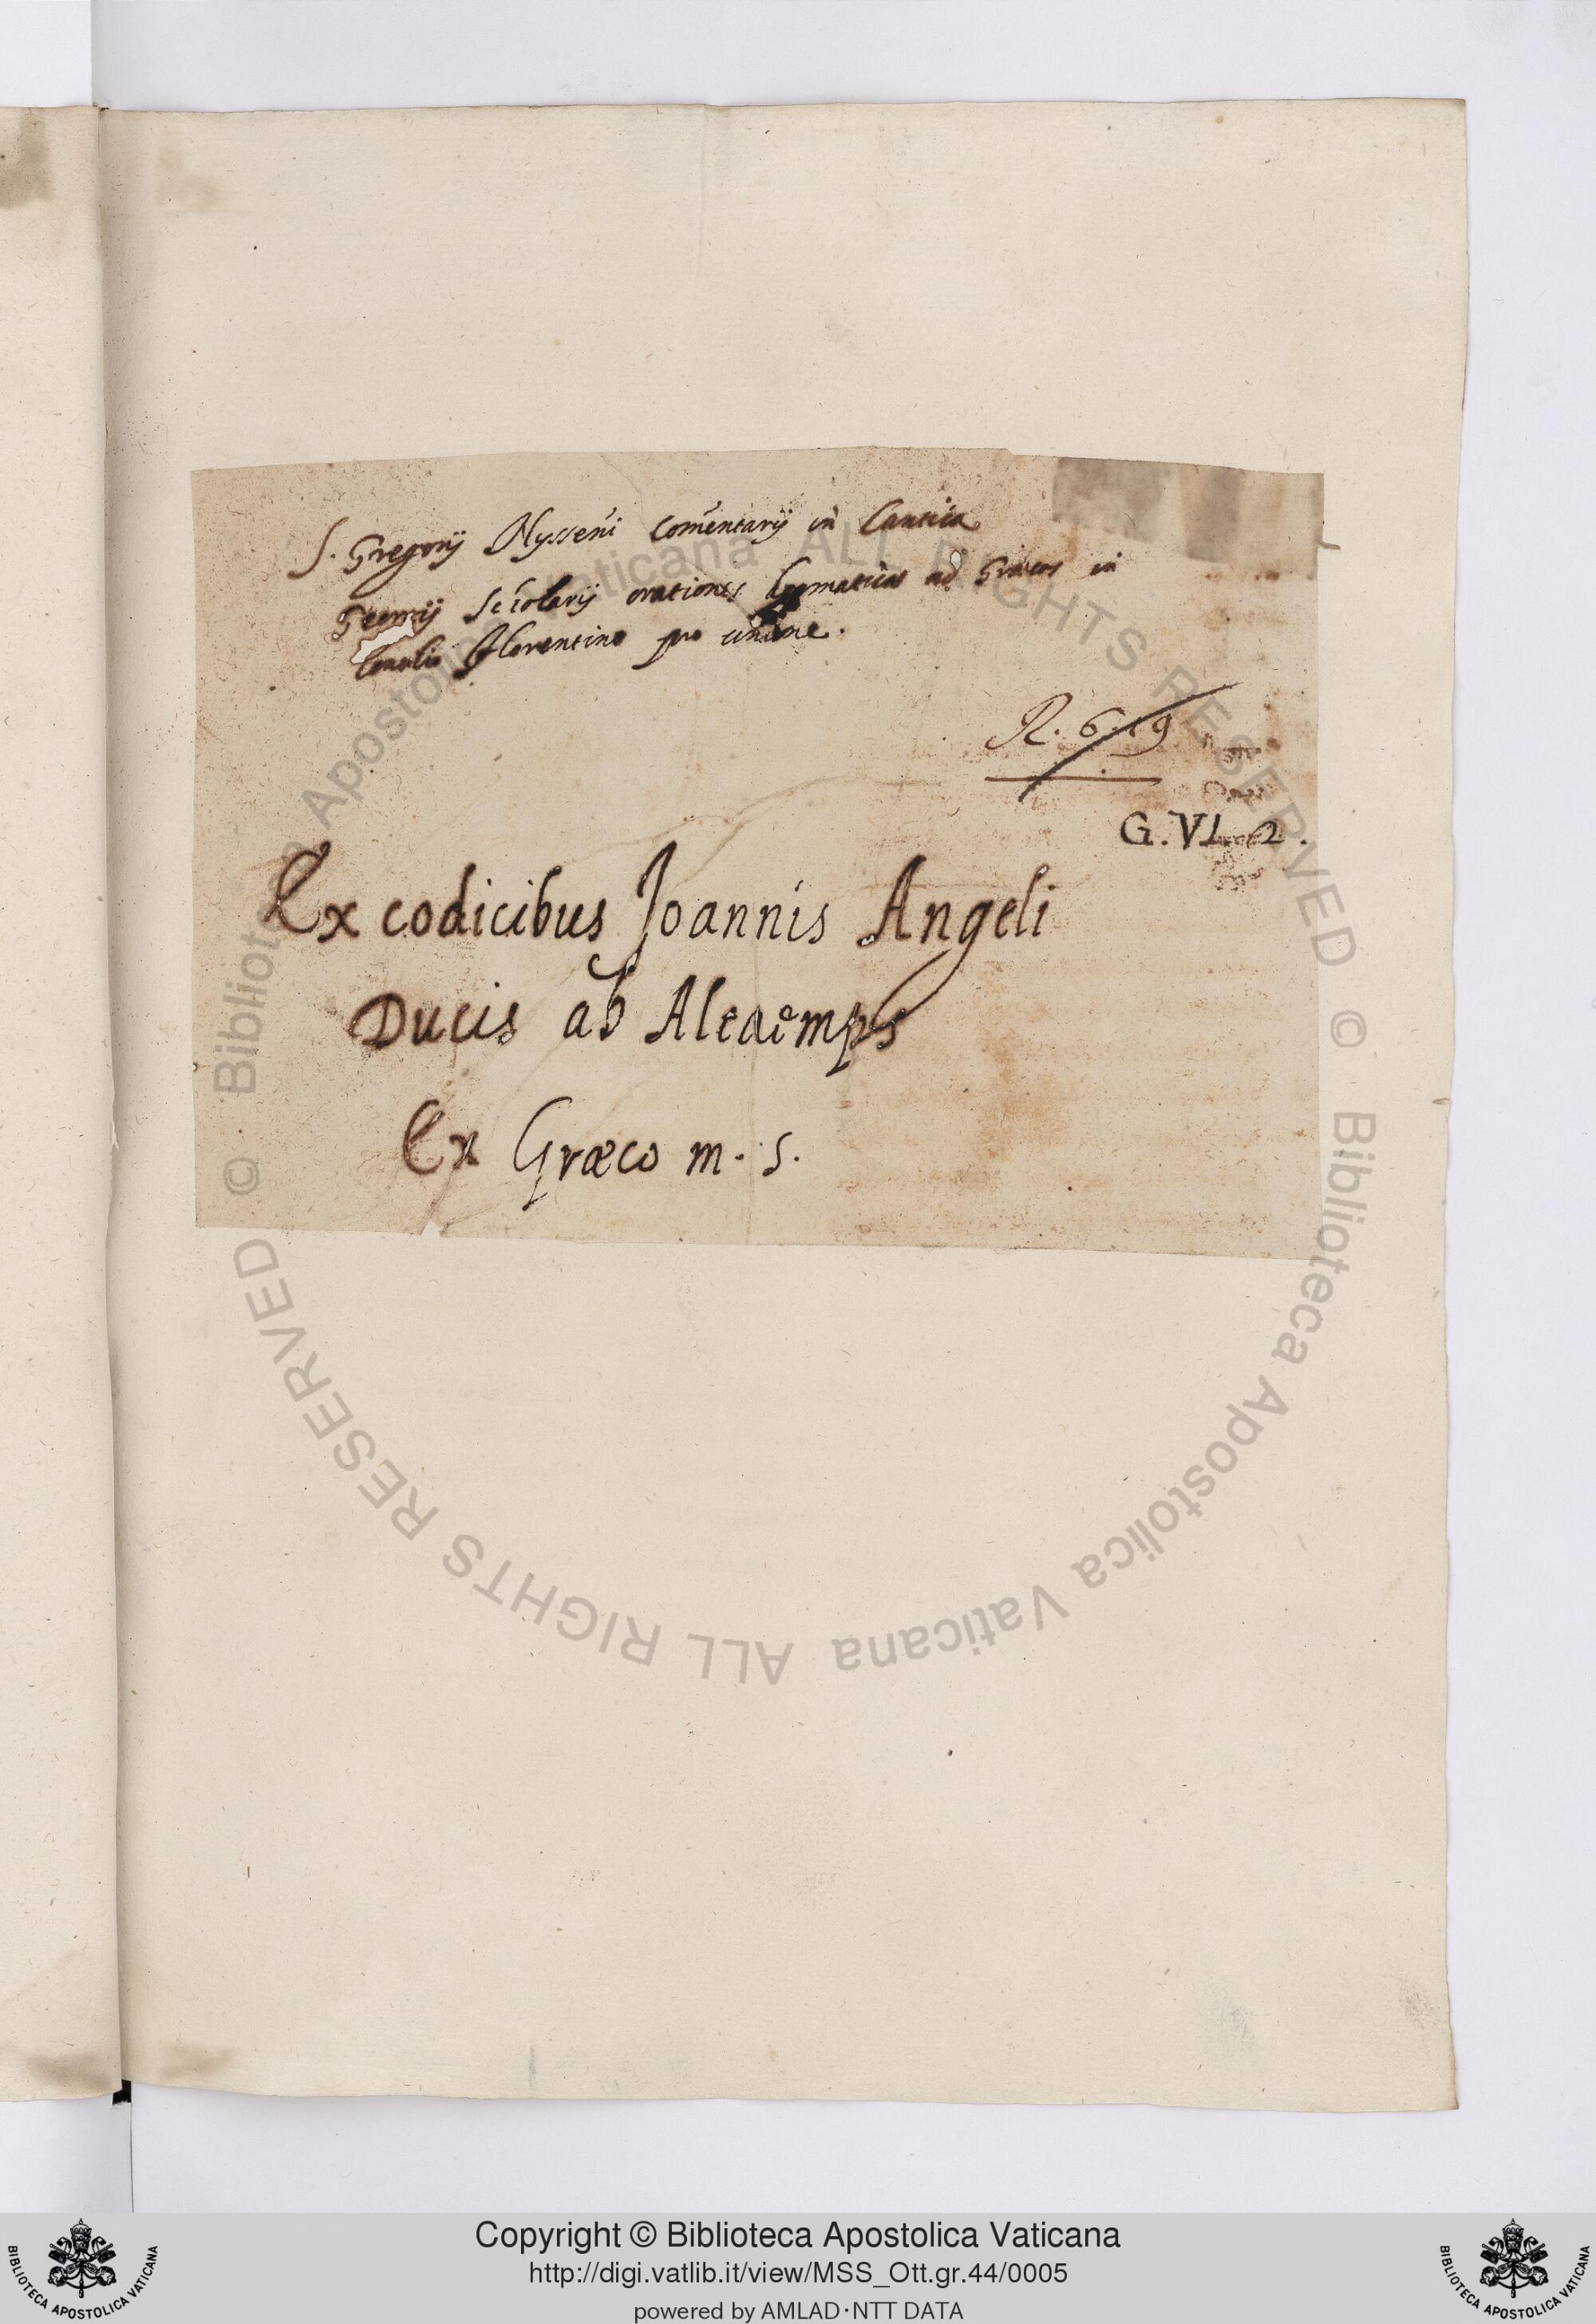 S. Gregorij Nysseni Comentarij in Cantica
Georgij Scholarij orationes dogmaticae ad Graecos in
Concilio Florentino pro unione.
R. 6. 19
G. VI. 2.
Ex codicibus Joannis Angeli
Ducis ab Altaemps
Ex Græco m. s.
© Biblioteca Apostolica Vaticana ALL RIGHTS RESERVED
© Biblioteca Apostolica Vaticana ALL RIGHTS RESERVED
Copyright © Biblioteca Apostolica Vaticana
http://digi.vatlib.it/view/MSS_Ott.gr.44/0005
powered by AMLAD·NTT DATA
BIBLIOTECA APOSTOLICA VATICANA
BIBLIOTECA APOSTOLICA VATICANA